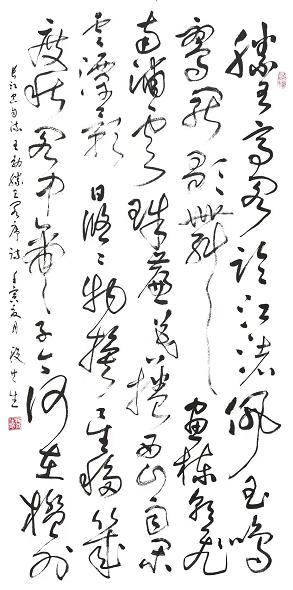 滕王高阁临江渚佩玉鸣
鸾罢歌舞画栋朝飞
南浦云珠帘暮卷西山雨闲
云潭影日悠々物换星移几
度秋阁中帝子今何在槛外
长江空自流 王勃滕王阁序诗 壬寅夏月